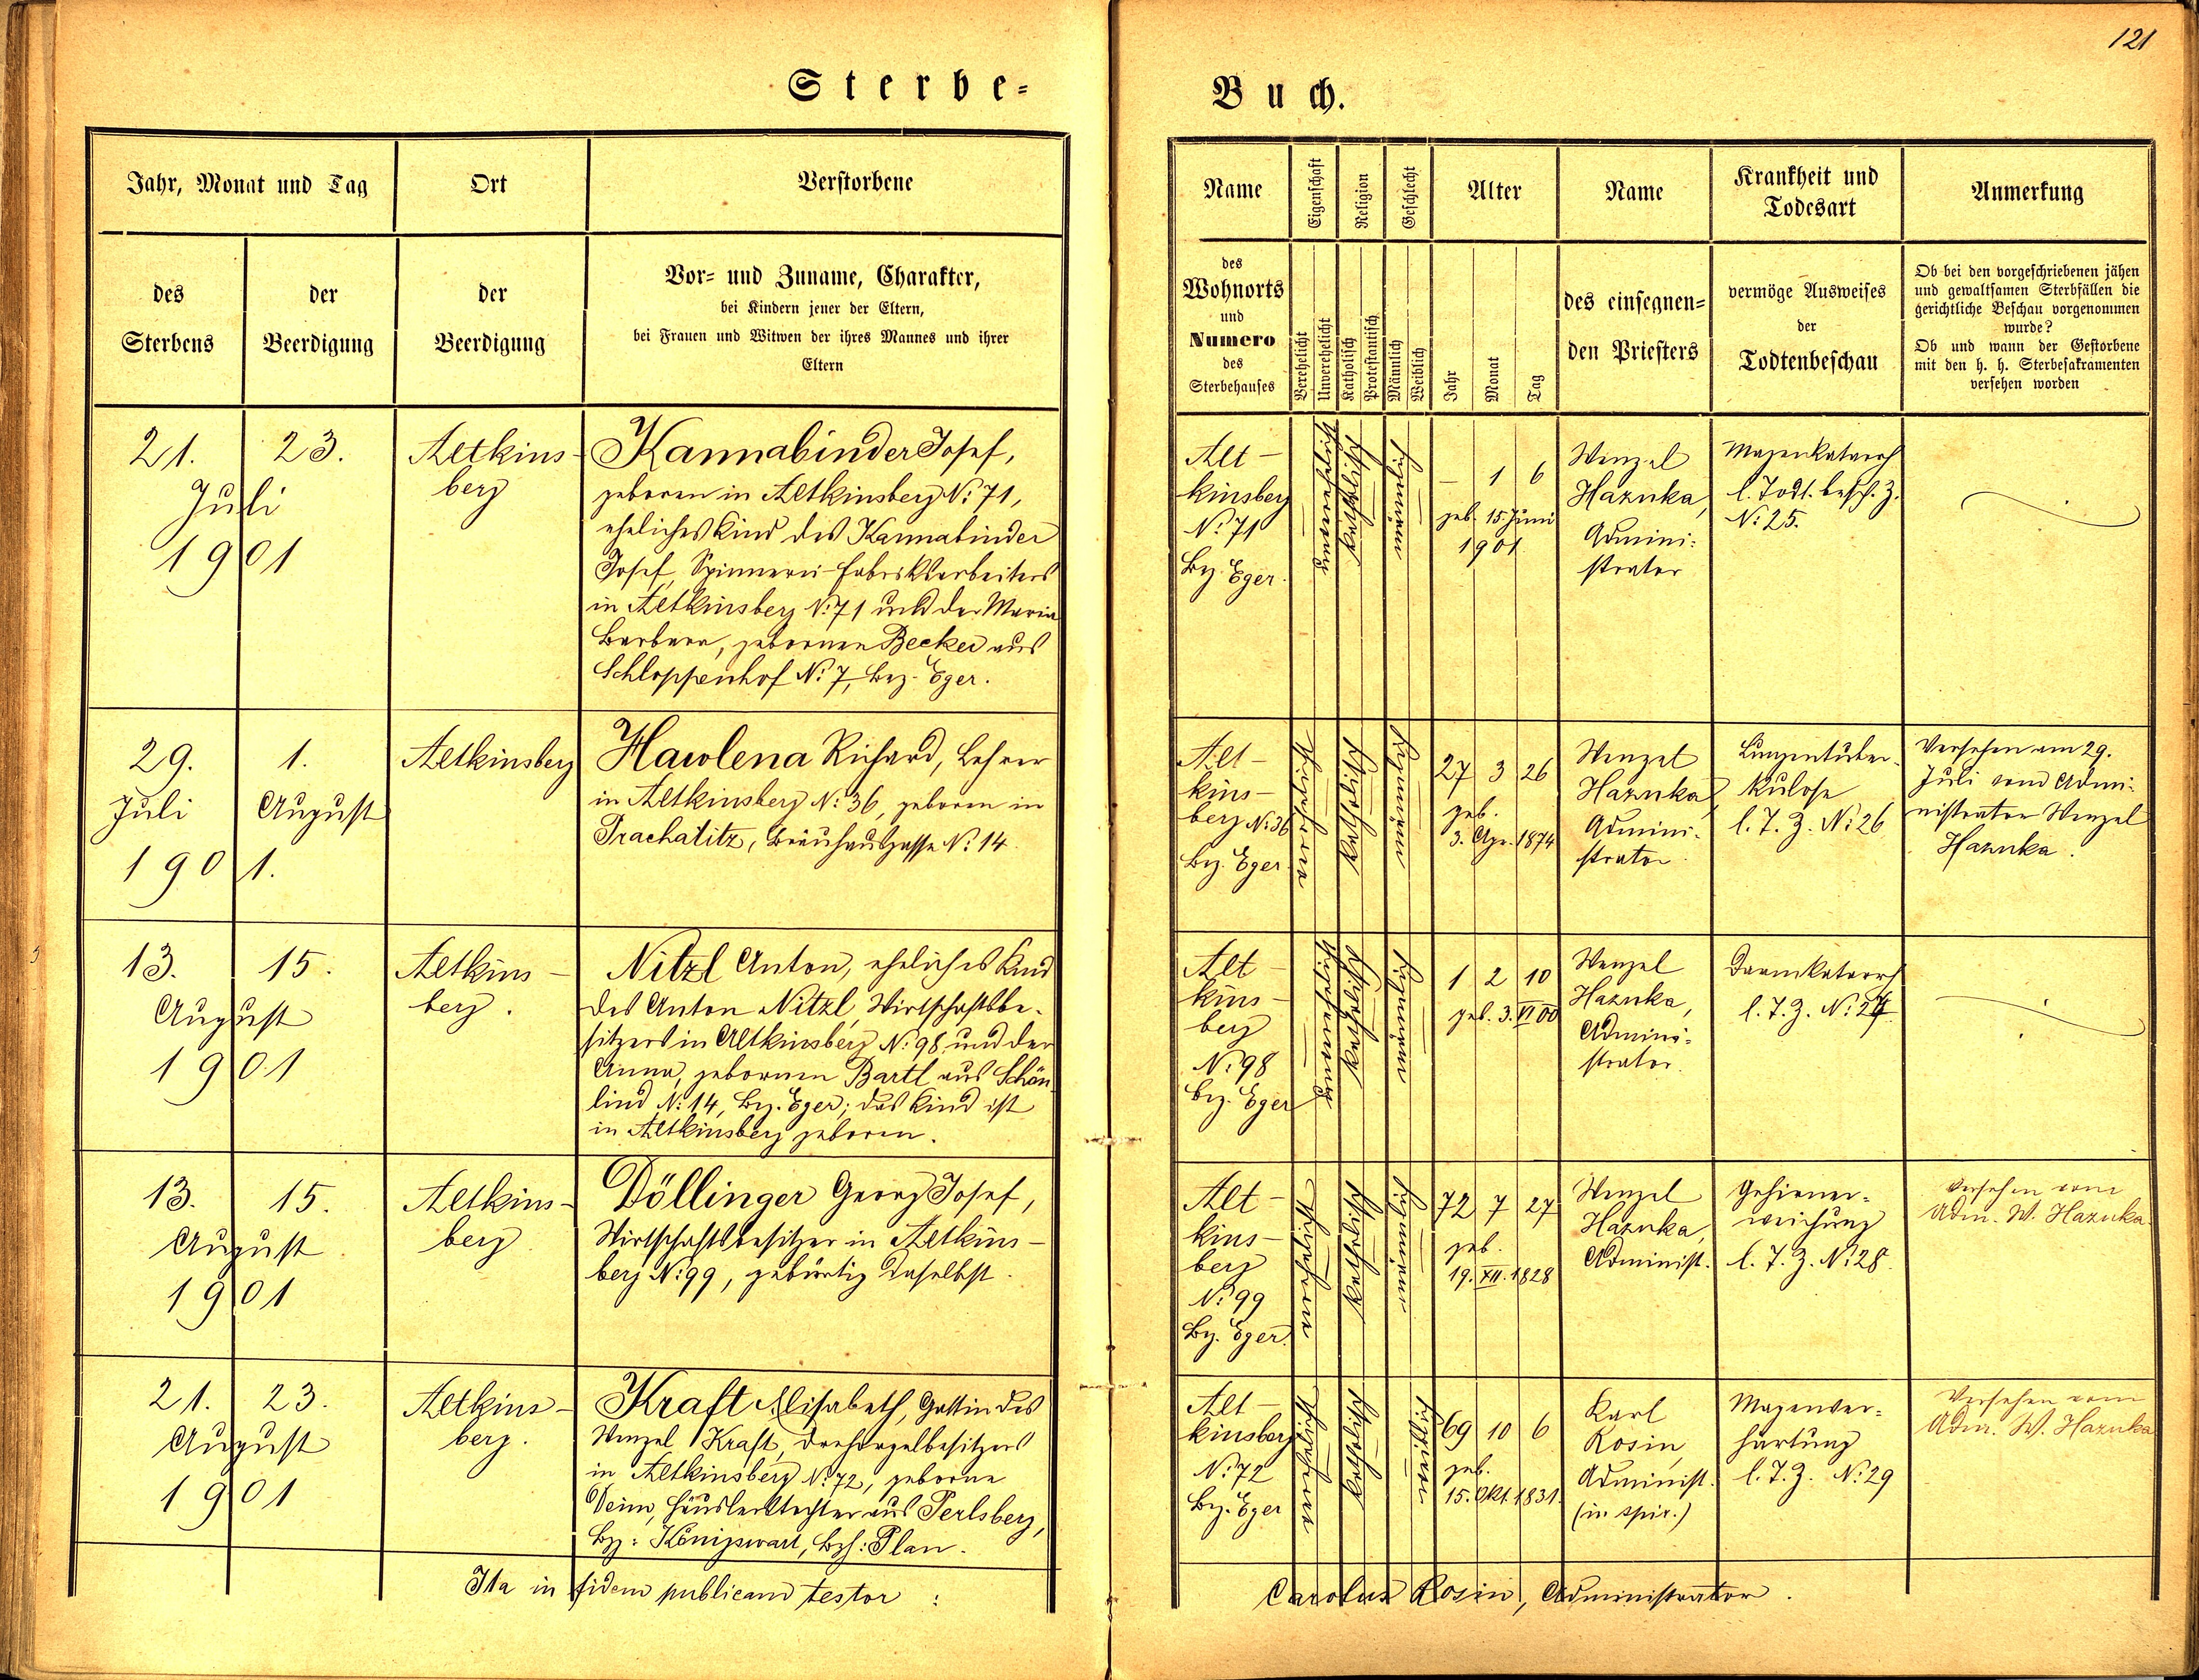 121
Sterbe=
Buch.
Jahr, Monat und Tag
Ort
Verstorbene
des
Sterbens
der
Beerdigung
der
Beerdigung
Vor= und Zuname, Charakter,
bei Kindern jener der Eltern,
bei Frauen und Witwen der ihres Mannes und ihrer
Eltern
Name
Eigenschaft
Religion
Geschlecht
Alter
Name
Krankheit und
Todesart
Anmerkung
des
Wohnorts
und
Numero
des
Sterbehauses
Verehelicht
Unverehelicht
Katholisch
Protestantisch
Männlich
Weiblich
Jahr
Monat
Tag
des einsegnen=
den Priesters
vermöge Ausweises
der
Todtenbeschau
Ob bei den vorgeschriebenen jähen
und gewaltsamen Sterbfällen die
gerichtliche Beschau vorgenommen
wurde?
Ob und wann der Gestorbene
mit den h. h. Sterbesakramenten
versehen worden
21.
23.
Juli
1901
Altkins-
berg
Kannabinder Josef,
geboren in Altkinsberg N: 71,
eheliches Kind des Kannabinder
Josef, Spinnerei-Fabriksarbeiters
in Altkinsberg N: 71 und der Maria
Barbara, gebornen Becker aus
Schloppenhof N: 7, Bez. Eger.
Alt-
kinsberg
N: 71
Bz. Eger.
unverehelicht
katholisch
männlich
– 1 6
geb. 15. Juni
1901
Wenzel
Hazuka,
Admini-
strator
Magenkatarrh
l. Todt. besch. Z.
N: 25.
29.
Juli
1.
August
1901.
Altkinsberg
Hawlena Richard, Lehrer
in Altkinsberg N: 36, geboren in
Prachatitz, Bräuhausgasse N: 14.
Alt-
kins-
berg N: 36
Bz. Eger
verehelicht
katholisch
männlich
27 3 26
geb.
3. Apr. 1874
Wenzel
Hazuka,
Admini-
strator.
Lungentuber-
kulose
l. T. Z. N: 26
Versehen am 29.
Juli vom Admi-
nistrator Wenzel
Hazuka.
13.
15.
August
1901
Altkins-
berg.
Nitzl Anton, eheliches Kind
des Anton Nitzl, Wirtschaftsbe-
sitzers in Altkinsberg N: 98 und der
Anna, gebornen Bartl aus Schön
lind N: 14, Bz. Eger; das Kind ist
in Altkinsberg geboren.
Alt-
kins-
berg
N: 98
Bz. Eger
unverehelicht
katholisch
männlich
1 2 10
geb. 3. VI 00
Wenzel
Hazuka,
Admini-
strator.
Darmkatarrh
l. T. Z. N: 27
13.
15.
August
1901
Altkins-
berg
Döllinger Georg Josef,
Wirtschaftsbesitzer in Altkins-
berg N: 99, gebürtig daselbst.
Alt-
kins-
berg
N: 99
Bz. Eger.
verehelicht
katholisch
männlich
72 7 27
geb.
19. XII. 1828
Wenzel
Hazuka,
Administ.
Gehirner-
weichung
l. T. Z. N: 28.
Versehen vom
Adm. W. Hazuka.
21.
23.
August
1901
Altkins-
berg.
Kraft Elisabeth, Gattin des
Wenzel Kraft, Drehorgelbesitzers
in Altkinsberg N: 72, geborne
Deim, Häuslerstochter aus Perlsberg,
Bz: Königswart, Bzh: Plan.
Alt-
kinsberg
N: 72
Bz. Eger
verehelicht
katholisch
weiblich
69 10 6
geb.
15. Okt. 1831.
Karl
Rosin,
Administ.
(in spir.)
Magenver-
härtung
l. T. Z. N: 29
Versehen vom
Adm. W. Hazuka
Ita in fidem publicam testor :
Carolus Rosin, Administrator.